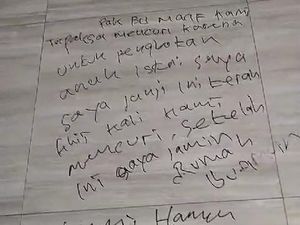 Pak Bu Maaf Kami
Terpaksa mencuri karena
untuk pengobatan
anak isteri saya
saya janji ini terah
fhir kali kami
mencuri setelah
ini saya jamin
Rumah